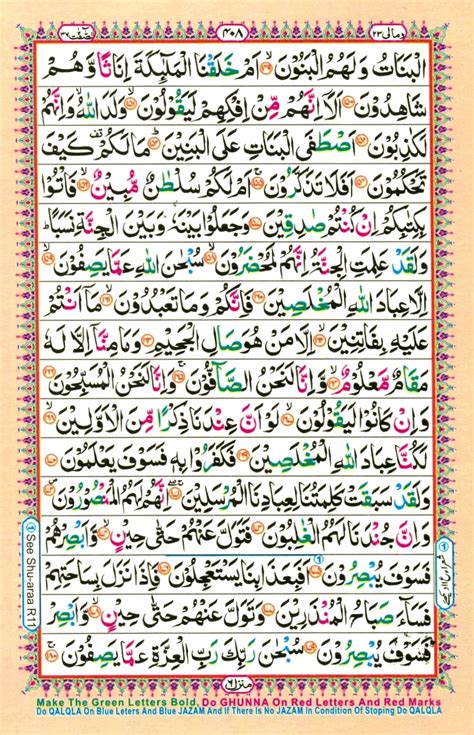 وَمَالِیَ ٢٣ ٤٠٨ صٰٓفّٰت ٣٧
الْبَنَاتُ وَلَهُمُ الْبَنُوْنَ ۙ﴿۱۴۹﴾ اَمْ خَلَقْنَا الْمَلٰٓئِكَةَ اِنَاثًا وَّهُمْ
شٰهِدُوْنَ ﴿۱۵۰﴾ اَلَاۤ اِنَّهُمْ مِّنْ اِفْكِهِمْ لَيَقُوْلُوْنَ ۙ﴿۱۵۱﴾ وَلَدَ اللّٰهُ ۙ وَاِنَّهُمْ
لَكٰذِبُوْنَ ﴿۱۵۲﴾ اَصْطَفَى الْبَنَاتِ عَلَى الْبَنِيْنَ ؕ﴿۱۵۳﴾ مَا لَكُمْ كَيْفَ
تَحْكُمُوْنَ ﴿۱۵۴﴾ اَفَلَا تَذَكَّرُوْنَ ۚ﴿۱۵۵﴾ اَمْ لَكُمْ سُلْطٰنٌ مُّبِيْنٌ ۙ﴿۱۵۶﴾ فَاْتُوْا
بِكِتٰبِكُمْ اِنْ كُنْتُمْ صٰدِقِيْنَ ﴿۱۵۷﴾ وَجَعَلُوْا بَيْنَهٗ وَبَيْنَ الْجِنَّةِ نَسَبًا ؕ
وَلَقَدْ عَلِمَتِ الْجِنَّةُ اِنَّهُمْ لَمُحْضَرُوْنَ ۙ﴿۱۵۸﴾ سُبْحٰنَ اللّٰهِ عَمَّا يَصِفُوْنَ ۙ﴿۱۵۹﴾
اِلَّا عِبَادَ اللّٰهِ الْمُخْلَصِيْنَ ﴿۱۶۰﴾ فَاِنَّكُمْ وَمَا تَعْبُدُوْنَ ۙ﴿۱۶۱﴾ مَاۤ اَنْتُمْ
عَلَيْهِ بِفٰتِنِيْنَ ۙ﴿۱۶۲﴾ اِلَّا مَنْ هُوَ صَالِ الْجَحِيْمِ ﴿۱۶۳﴾ وَمَا مِنَّاۤ اِلَّا لَهٗ
مَقَامٌ مَّعْلُوْمٌ ۙ﴿۱۶۴﴾ وَّاِنَّا لَنَحْنُ الصَّآفُّوْنَ ۚ﴿۱۶۵﴾ وَاِنَّا لَنَحْنُ الْمُسَبِّحُوْنَ ﴿۱۶۶﴾
وَاِنْ كَانُوْا لَيَقُوْلُوْنَ ۙ﴿۱۶۷﴾ لَوْ اَنَّ عِنْدَنَا ذِكْرًا مِّنَ الْاَوَّلِيْنَ ۙ﴿۱۶۸﴾
لَكُنَّا عِبَادَ اللّٰهِ الْمُخْلَصِيْنَ ﴿۱۶۹﴾ فَكَفَرُوْا بِهٖ فَسَوْفَ يَعْلَمُوْنَ ﴿۱۷۰﴾
وَلَقَدْ سَبَقَتْ كَلِمَتُنَا لِعِبَادِنَا الْمُرْسَلِيْنَ ۚ﴿۱۷۱﴾ اِنَّهُمْ لَهُمُ الْمَنْصُوْرُوْنَ ﴿۱۷۲﴾
وَاِنَّ جُنْدَنَا لَهُمُ الْغٰلِبُوْنَ ﴿۱۷۳﴾ فَتَوَلَّ عَنْهُمْ حَتّٰى حِيْنٍ ۙ﴿۱۷۴﴾ وَّاَبْصِرْهُمْ
فَسَوْفَ يُبْصِرُوْنَ ﴿۱۷۵﴾ اَفَبِعَذَابِنَا يَسْتَعْجِلُوْنَ ﴿۱۷۶﴾ فَاِذَا نَزَلَ بِسَاحَتِهِمْ
فَسَآءَ صَبَاحُ الْمُنْذَرِيْنَ ﴿۱۷۷﴾ وَتَوَلَّ عَنْهُمْ حَتّٰى حِيْنٍ ۙ﴿۱۷۸﴾ وَّاَبْصِرْ
فَسَوْفَ يُبْصِرُوْنَ ﴿۱۷۹﴾ سُبْحٰنَ رَبِّكَ رَبِّ الْعِزَّةِ عَمَّا يَصِفُوْنَ ۚ﴿۱۸۰﴾
See Shu-araa R11
منزل ٦
Make The Green Letters Bold, Do GHUNNA On Red Letters And Red Marks
Do QALQLA On Blue Leters And Blue JAZAM And If There Is No JAZAM In Condition Of Stoping Do QALQLA